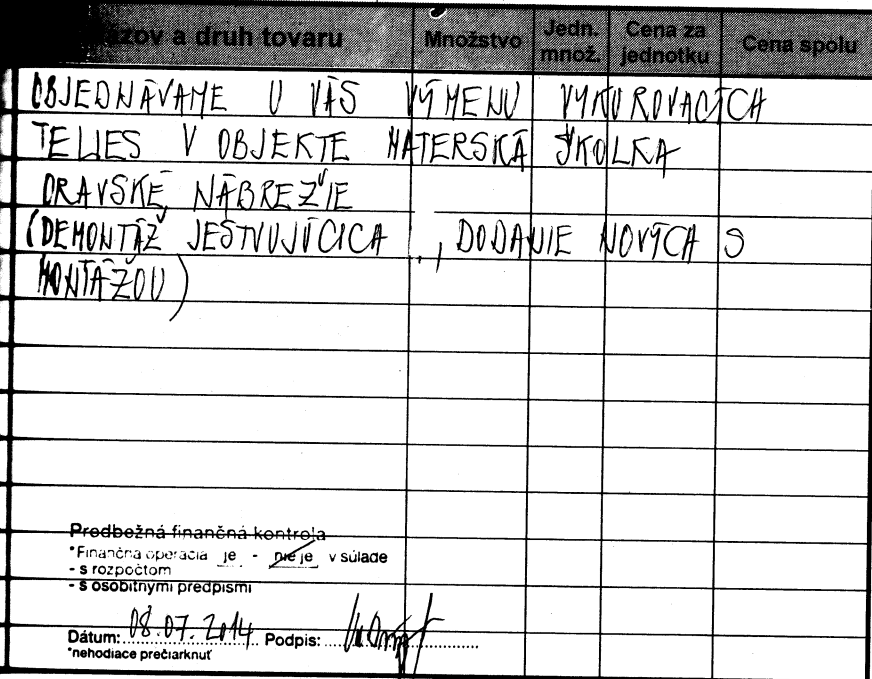 Názov a druh tovaru Množstvo Jedn. množ. Cena za jednotku Cena spolu
OBJEDNÁVAME U VÁS VÝMENU VYKUROVACÍCH
TELIES V OBJEKTE MATERSKÁ ŠKOLKA
ORAVSKÉ NÁBREŽIE
(DEMONTÁŽ JESTVUJÚCICH, DODANIE NOVÝCH S
MONTÁŽOU)
Predbežná finančná kontrola
*Finančná operácia je - nie je v súlade
- s rozpočtom
- s osobitnými predpismi
Dátum: 08.07.2014 Podpis:
*nehodiace prečiarknuť